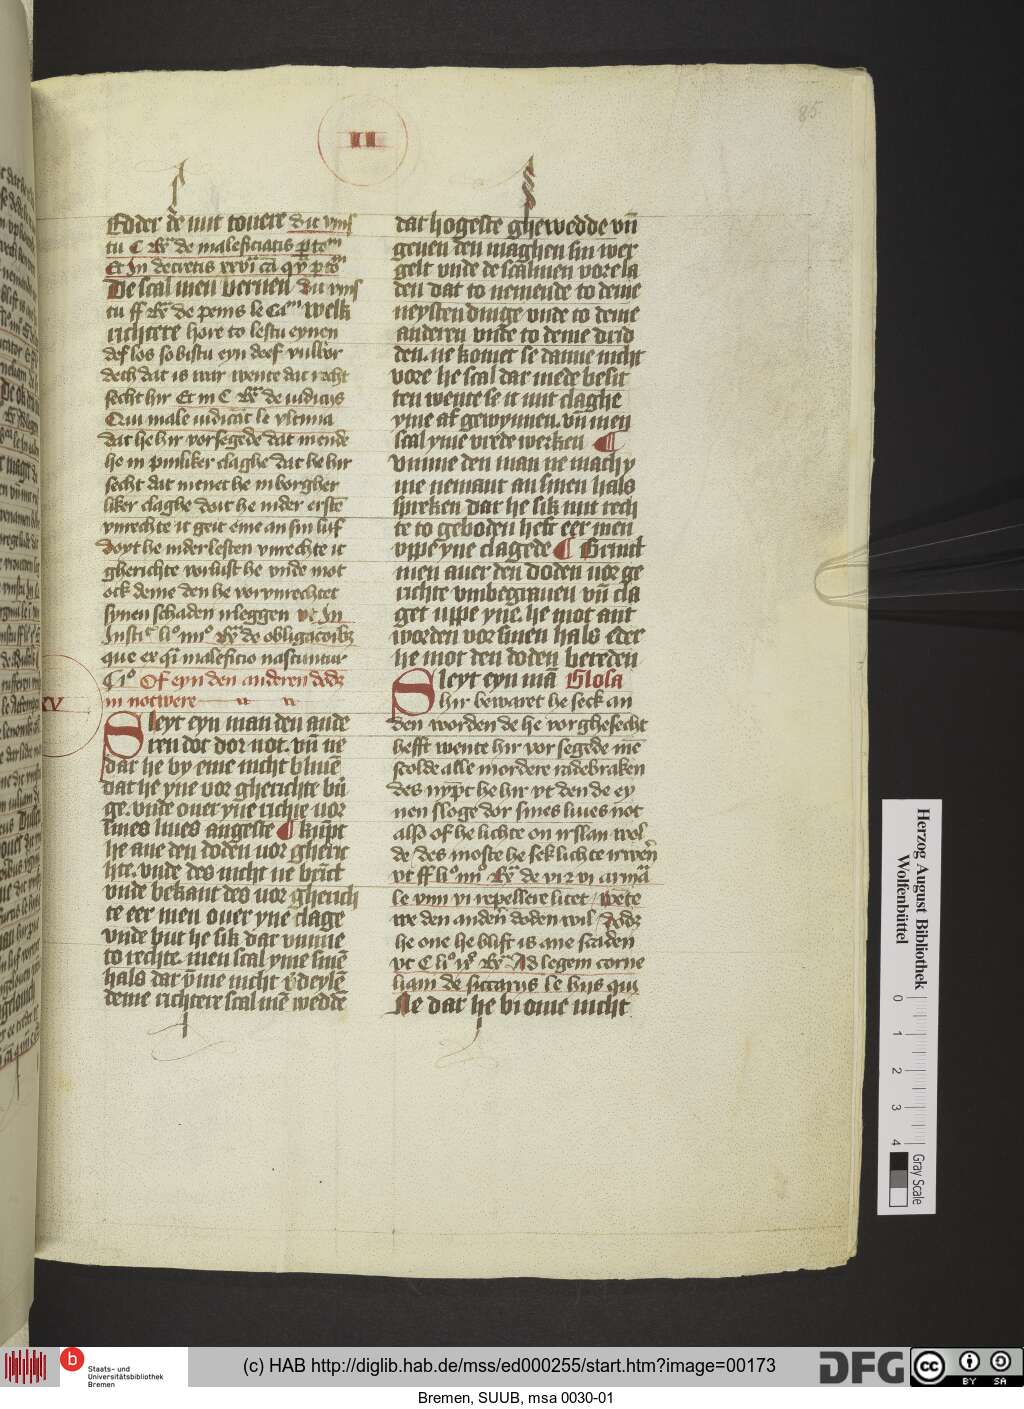 II
85
Edder de mit touere dit vins
tu C Rx de maleficiatis
Et In decretis xxvi cā
De scal men bernen
tu ff Rx de penis le Cam welk
richtere hore to lestu eynen
def los so bistu eyn deef vullbor
dech dat is war wente dat recht
secht hir Et in C Rx de iudicijs
Qui male iudicāt le vltima
dat he hir vorsegede dat mende
he in pinliker claghe dat he hir
secht dat menet he in borgher
liker claghe doit he in der erstē
vnrechte it geit eme an sin luf
doyt he in der lesten vnrechte it
gherichte vorlust he vnde mot
ock deme den he vorvnrechtet
synen schaden irleggen vt In
Insti li° iiii° Rx de obligacoībz
que ex qi maleficio nascuntur
Of eyn den anderen dodz
in notwere
XV
Sleyt eyn man den ande
ren dot dor not. vn̄ ne
dar he by eme nicht bliuē
dat he yne vor gherichte bri
ge. vnde ouer yne richte uor
sines liues angeste ¶ kūpt
he ane den doden uor gherit
hte. vnde des nicht ne brict
vnde bekant des uor gherich
te eer men ouer yne clage
vnde but he sik dar vnnne
to rechte. men scal yme sinē
hals dar ūme nicht v̄deylē
deme richtere scal mē weddē
dat hogeste ghewedde vn̄
geuen den maghen sin wer
gelt vnde de scalmen vore la
den dat to nemende to deme
neysten dinge vnde to deme
anderen vnde to deme drid
den. ne komet se danne nicht
vore he scal dar mede besit
ten wente se it mit claghe
yme af gewynnen. vn̄ men
scal yme vrede werken ¶
Vnnne den man ne mach y
me nemant an sinen hals
spreken dat he sik mit rech
te to geboden heft eer men
vppe yne clagede ¶ Brinct
men auer den doden uor ge
richte vnbegrauen vn̄ cla
get uppe yne. he mot ant
worden vor sinen hals eder
he mot den doden bereden
Sleyt eyn mā Glosa
hir bewaret he seck an
den worden de he vorghesecht
hefft wente hir vor segede me
scolde alle mordere radebraken
des nypt he hir vt den de ey
nen sloge dor sines liues not
alsp of he lichte on irslan wol
de / des moste he sek lichte irwern
vt ff li° iiii° Rx de vi z vi armā
le vim vi repellere licet / wete
we den anderen doden wil / dodz
he one he blift is ane scaden
vt C li° ix° Rx Ad legem corne
liam de siccarijs le hijs qui
Ne dar he bi ome nicht
Herzog August Bibliothek
Wolfenbüttel
0 1 2 3 4
Gray Scale
b
Staats- und
Universitätsbibliothek
Bremen
(c) HAB http://diglib.hab.de/mss/ed000255/start.htm?image=00173
DFG
cc BY SA
Bremen, SUUB, msa 0030-01